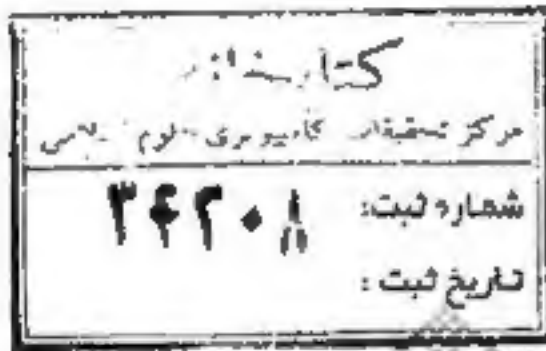 کتابخانه
مرکز تحقیقات کامپیوتری علوم اسلامی
شماره ثبت: ۳۴۲۰۸
تاریخ ثبت: